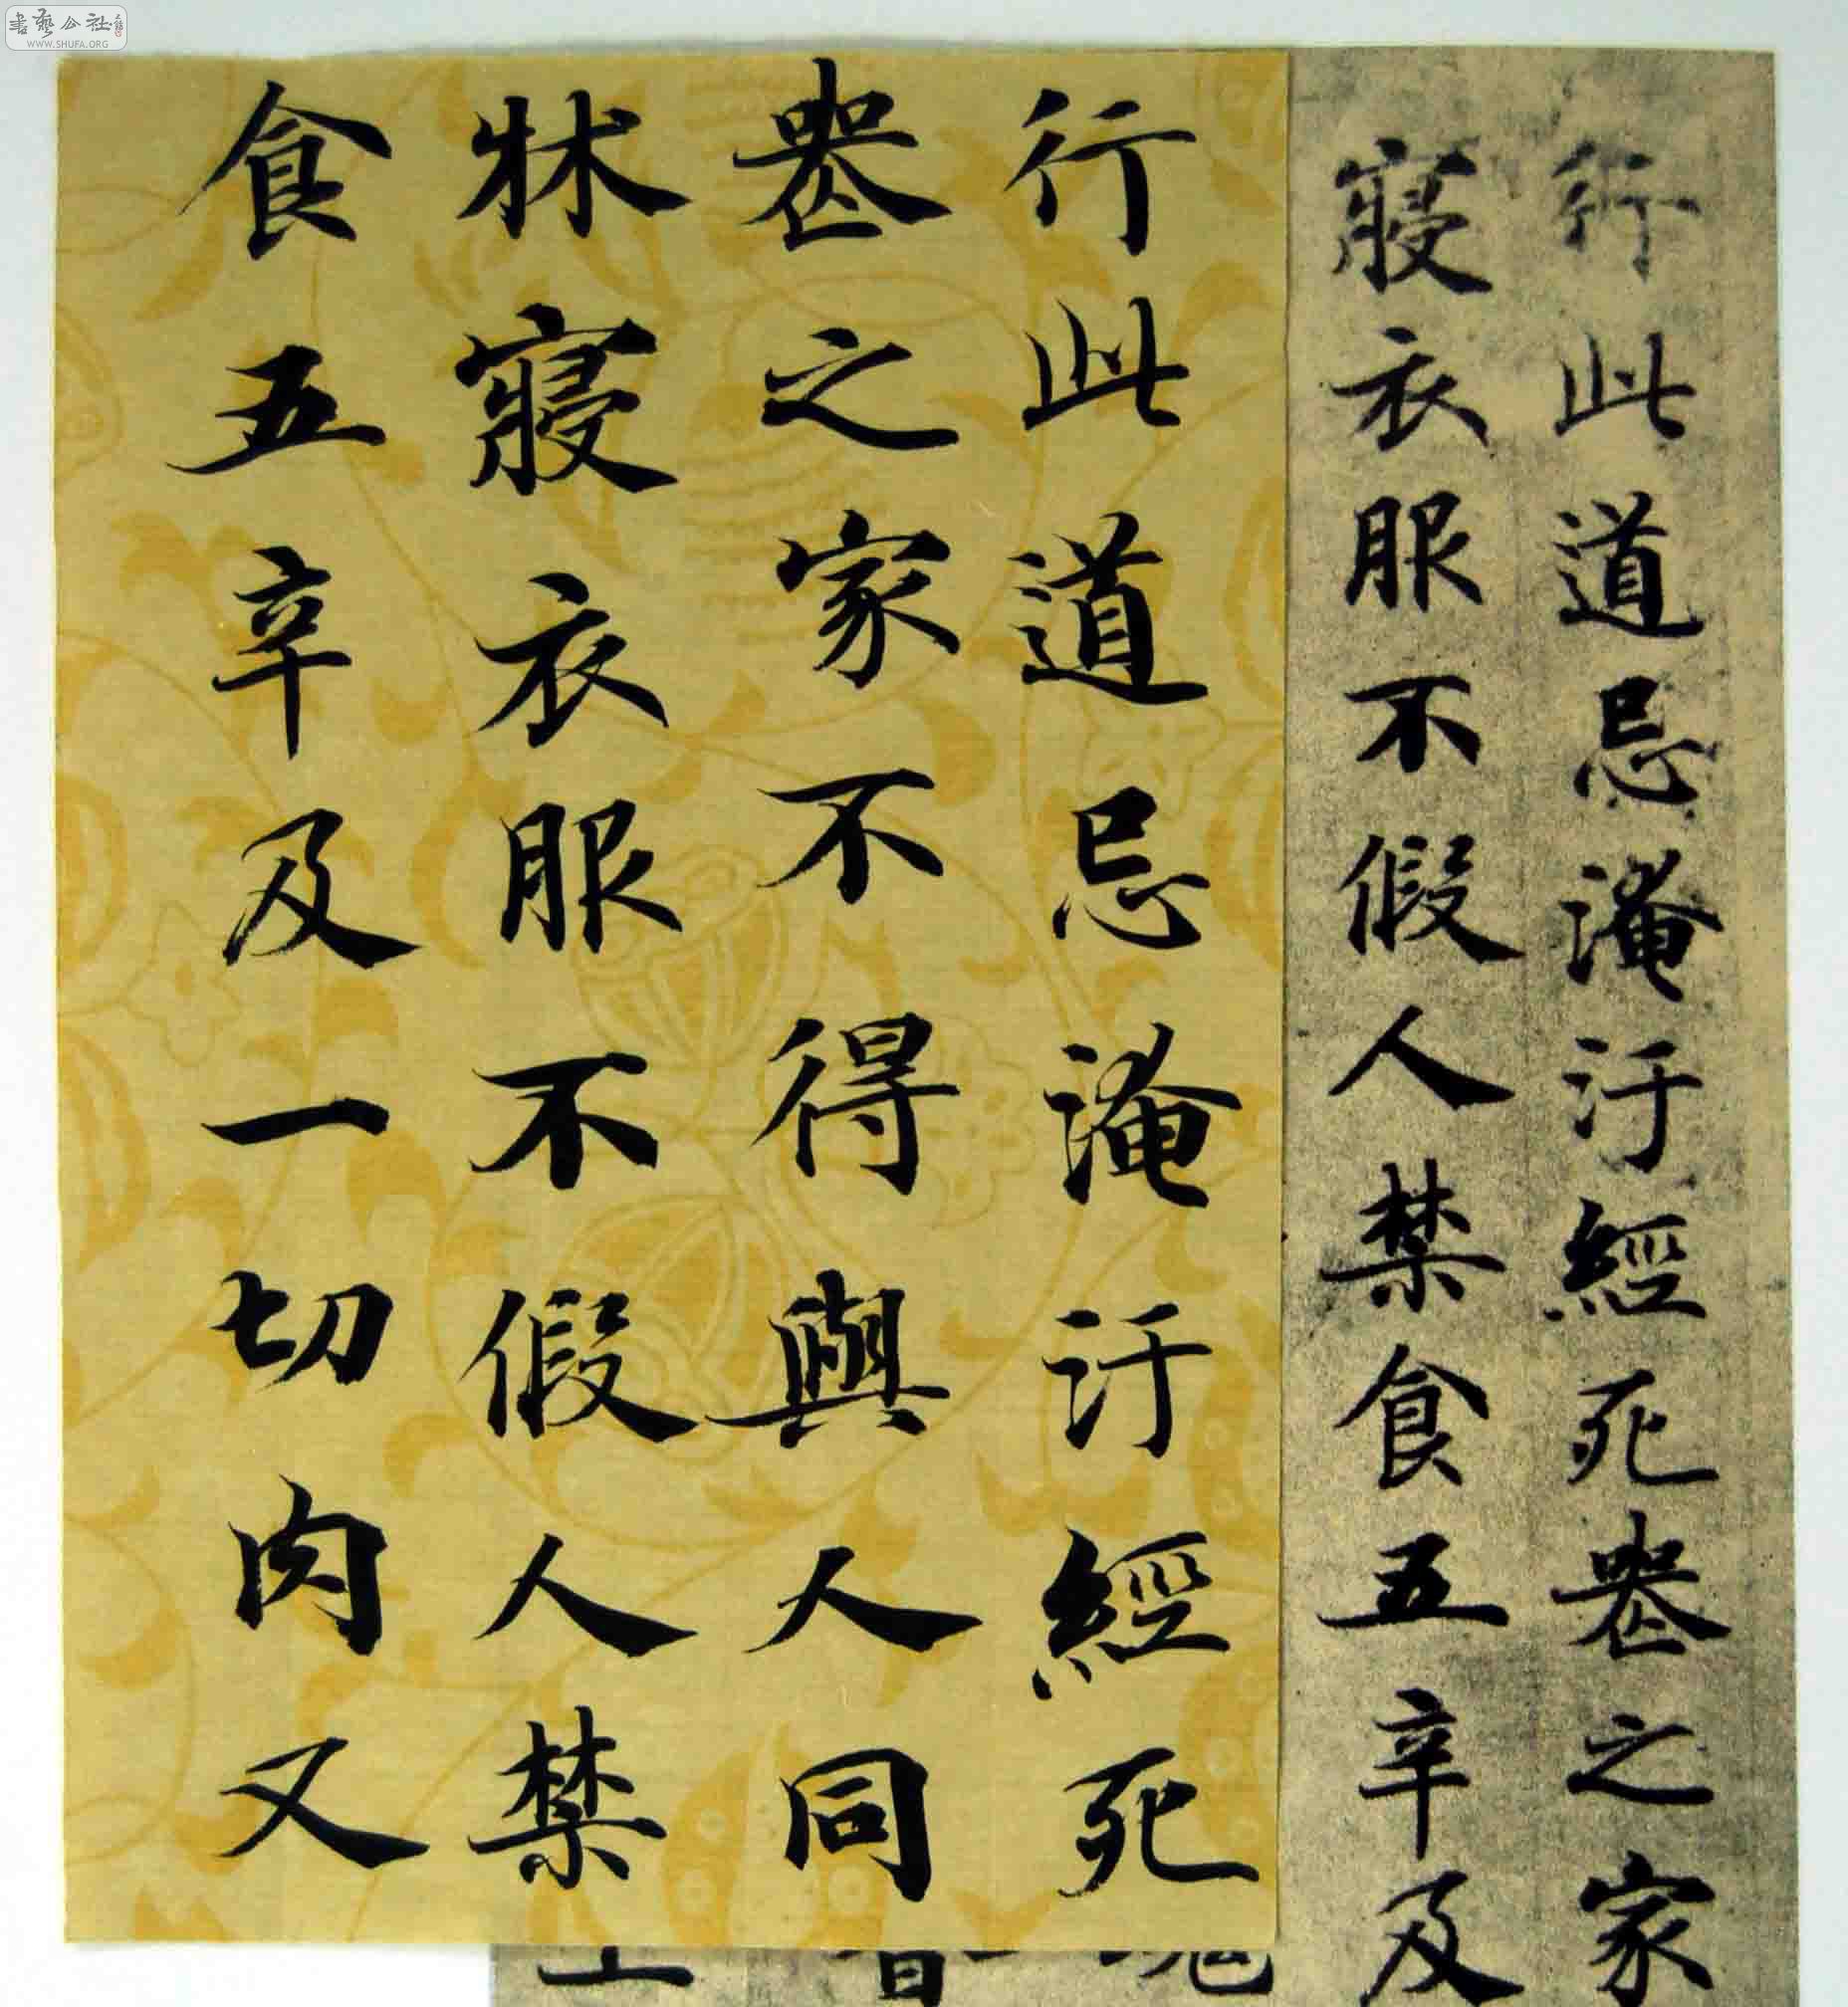 書藝公社
WWW.SHUFA.ORG
行此道忌淹汙經死
喪之家不得與人同
牀寢衣服不假人禁
食五辛及一切肉又
行此道忌淹汙經死喪之家
寢衣服不假人禁食五辛及